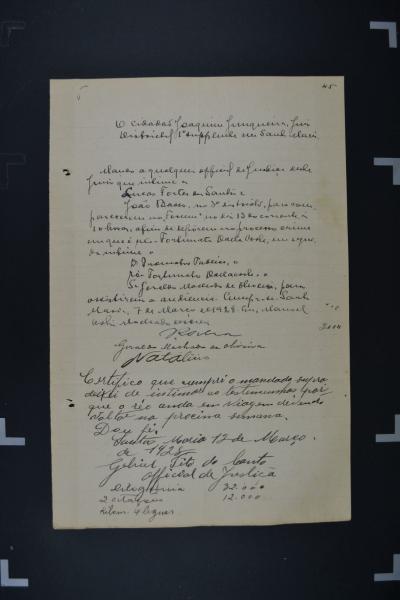 45
O cidadão Joaquim Junqueira, Juiz
Districtal 1º supplente em Santa Maria.
Mando a qualquer official de Justiça deste
Juizo que intime a
Lucas Fortes dos Santos e
João Basso, no 3º districto, para com
parecerem no Forum no dia 13 do corrente, ás
horas, afim de deporem no processo crime
em que é réo Fortunato Dalla Costa, em
da intime o
Dr Promotor Publico, o
réo Fortunato Dallacosta, o
Sr Geraldo Machado de Oliveira, para
assistirem a audiencia. Cumpra. Santa
Maria, 7 de Março de 1928. Eu, Manoel
escrevi
Geraldo Machado de Oliveira
Natalino
Certifico que cumpri o mandado supra
deixei de intimar as testemunhas por
que o réo anda em viagem devendo
voltar na procima semana.
Dou fé.
Santa Maria 12 de Março
de 1928
Gabriel Pito do Canto
Official de Justiça
Deligencia 32.000
2 citações 12.000
Kilom. 4 leguas